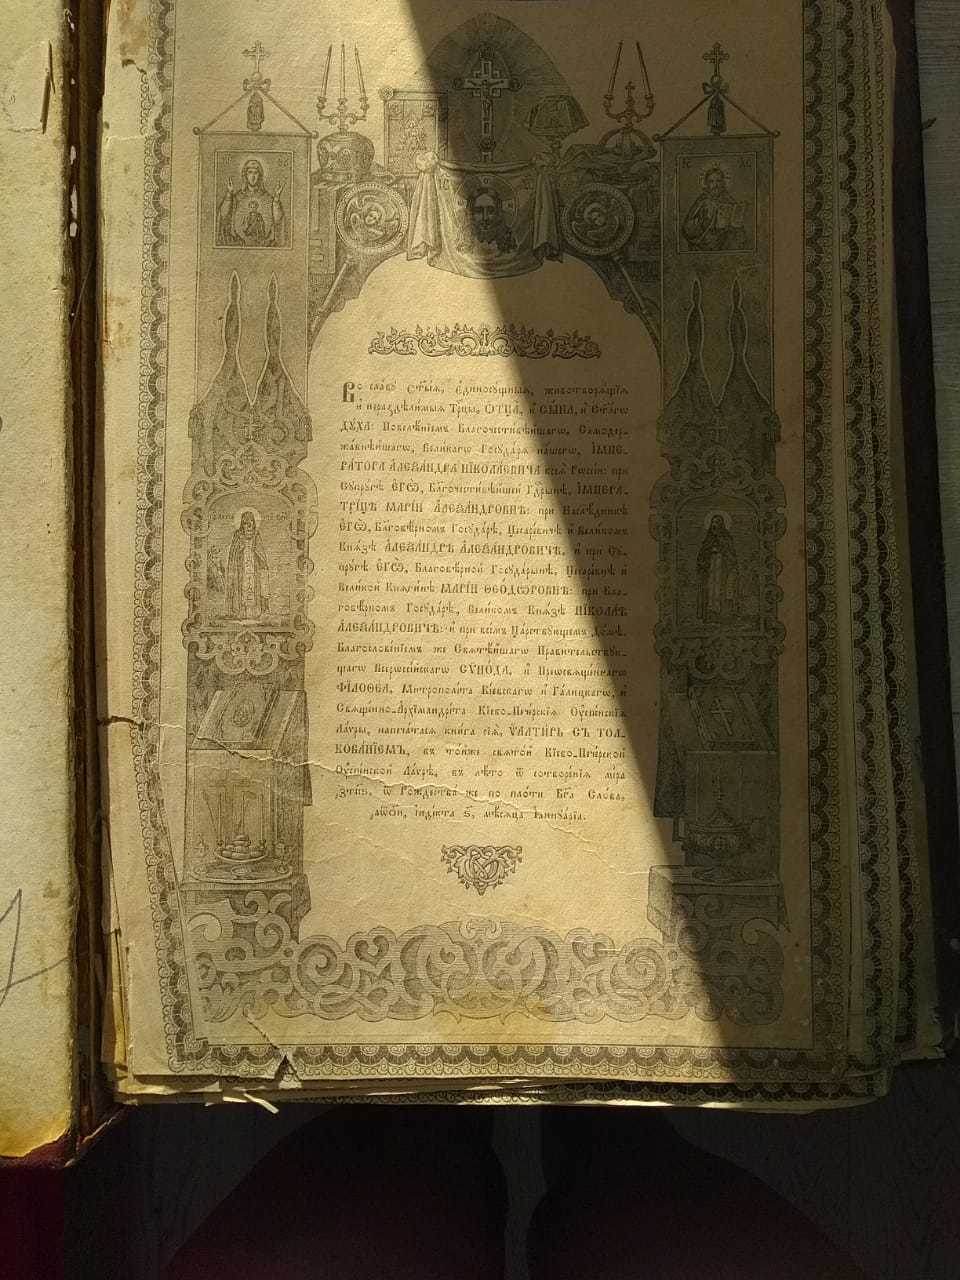 Во сла́вꙋ Ст҃ы́ѧ, Є҆диносꙋ́щныѧ, животворѧ́щїѧ
и҆ нераздѣ́лимыѧ Трⷪ҇цы, Ѻ҆ТЦА̀, и҆ СЫ́НА, и҆ Ст҃а́гѡ
ДꙊ́ХА: Повелѣ́нїемъ Благочести́вѣйшагѡ, Самодер-
жа́внѣйшагѡ, Вели́кагѡ Государѧ̀ на́шегѡ, І҆МПЕ-
РА́ТОРА А҆ЛЕѮА́НДРА НІКОЛА́ЕВИЧА всеѧ̀ Рѡссі́и: при
Сꙋпрꙋ́гѣ Є҆ГѠ̀, Бл҃гочести́вѣйшей Гдⷭ҇ры́нѣ, І҆МПЕРА-
ТРИ́ЦѢ МАРІ́И А҆ЛЕѮА́НДРОВНѢ: при Наслѣ́дникѣ
Є҆ГѠ̀, Бл҃говѣ́рномъ Госꙋда́рѣ, Цесаре́вичѣ и҆ Вели́комъ
Кнѧ́зѣ А҆ЛЕѮА́НДРѢ А҆ЛЕѮА́НДРОВИЧѢ, и҆ при Сꙋ-
прꙋ́гѣ Є҆ГѠ̀, Благовѣ́рной Госꙋда́рынѣ, Цесаре́внѣ и҆
Вели́кой Кнѧги́нѣ МАРІ́И ѲЕО́ДѠРОВНѢ: при Бла-
говѣ́рномъ Госꙋда́рѣ, Вели́комъ Кнѧ́зѣ НІКОЛА́Ѣ
А҆ЛЕѮА́НДРОВИЧѢ: и҆ при все́мъ Ца́рствꙋющемъ До́мѣ.
Благослове́нїемъ же Свѧтѣ́йшагѡ Прави́тельствꙋю-
щагѡ Всерѡссі́йскагѡ СѴНО́ДА, и҆ Преѡсвѧще́ннагѡ
ФІЛОѲЕ́А, Митрополи́та Кі́евскагѡ и҆ Га́лицкагѡ, и҆
Свѧще́нно-А҆рхїмандри́та Кі́ево-Пече́рскїѧ Оу҆спе́нскїѧ
Ла́vры, напеча́тасѧ кни́га сїѧ̀, ѰАЛТИ́РЬ СЪ ТОЛ-
КОВА́НІЕМЪ, въ то́йже свѧто́й Кі́ево-Пече́рской
Оу҆спе́нской Ла́vрѣ, въ лѣ́то ѿ сотворе́нїѧ мі́ра
҂зтп҃ѕ, ѿ Рождества́ же по пло́ти Бг҃а Сло́ва,
҂аѡо҃и, і҆нді́кта ѕ҃, мѣ́сѧца І҆аннꙋа́рїа.